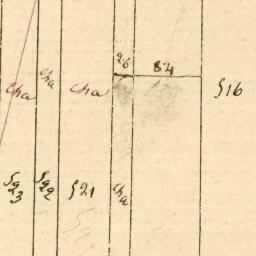 26 84
cha cha cha §16
§23 §22 §21 cha